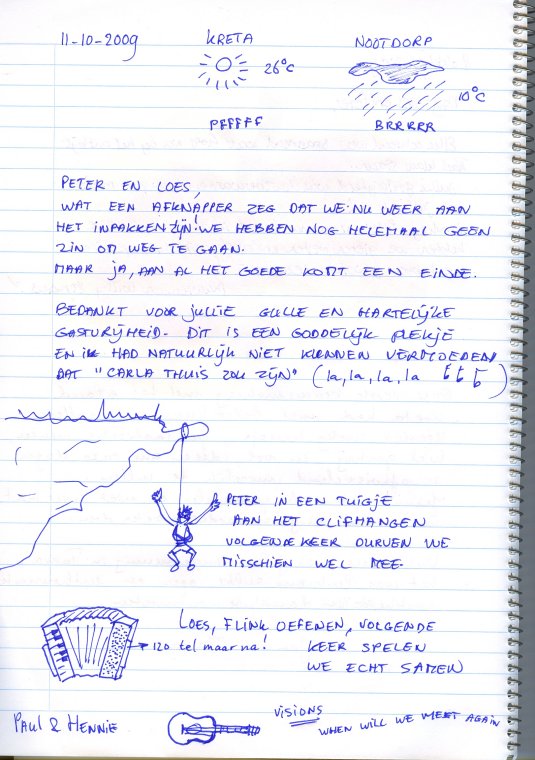 11-10-2009 KRETA NOOTDORP
26°C
10°C
PFFFFF BRRRRR
PETER EN LOES,
WAT EEN AFKNAPPER ZEG DAT WE NU WEER AAN
HET INPAKKEN ZIJN! WE HEBBEN NOG HELEMAAL GEEN
ZIN OM WEG TE GAAN.
MAAR JA, AAN AL HET GOEDE KOMT EEN EINDE.
BEDANKT VOOR JULLIE GULLE EN HARTELIJKE
GASTVRIJHEID. DIT IS EEN GODDELIJK PLEKJE
EN IK HAD NATUURLIJK NIET KUNNEN VERMOEDEN
DAT "CARLA THUIS ZOU ZIJN" (la, la, la, la )
PETER IN EEN TUIGJE
AAN HET CLIFHANGEN
VOLGENDE KEER DURVEN WE
MISSCHIEN WEL MEE.
LOES, FLINK OEFENEN, VOLGENDE
120 tel maar na! KEER SPELEN
WE ECHT SAMEN
PAUL & HENNIE
VISIONS
WHEN WILL WE MEET AGAIN